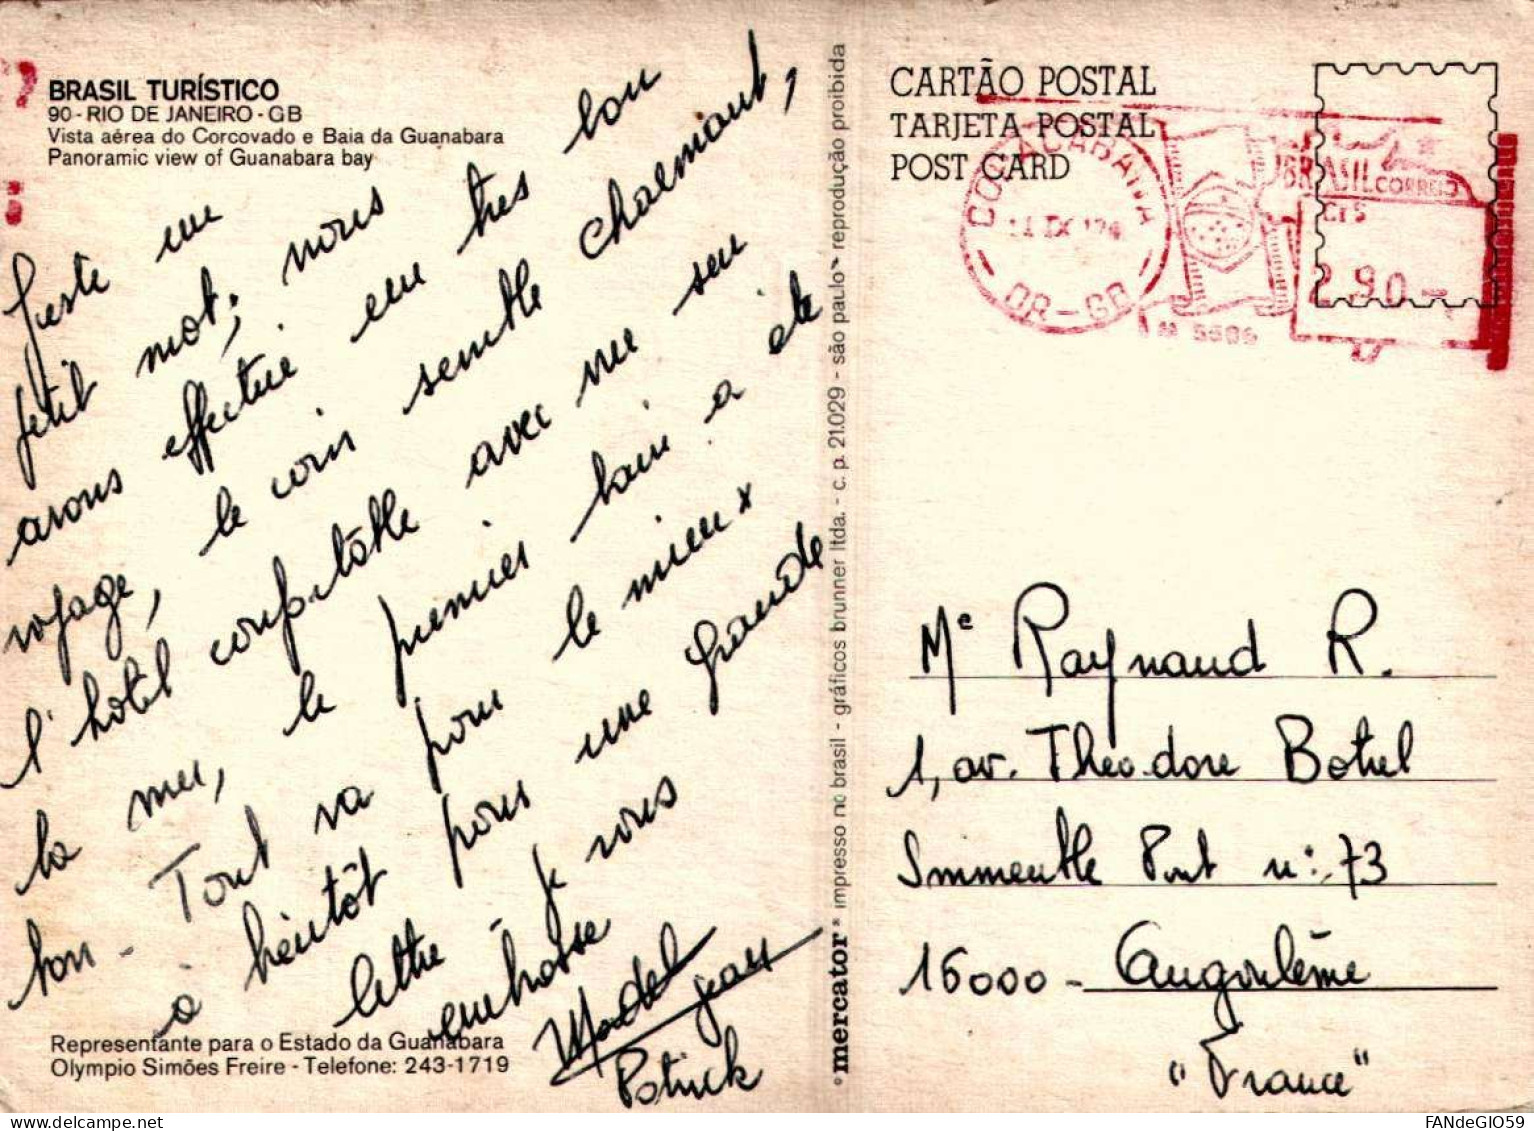 BRASIL TURÍSTICO
90 - RIO DE JANEIRO - GB
Vista aérea do Corcovado e Baia da Guanabara
Panoramic view of Guanabara bay
Juste un
petit mot; nous
avons effectué un très bon
voyage, le coin semble charmant,
l'hôtel confortable avec vue sur
la mer, le premier bain a été
bon - Tout va pour le mieux
à bientôt pour une grande
lettre - je vous
embrasse
Jean
Patrick
Representante para o Estado da Guanabara
Olympio Simões Freire - Telefone: 243-1719
°mercator* impresso no brasil - gráficos brunner ltda. - c. p. 21.029 - são paulo - reprodução proibida
CARTÃO POSTAL
TARJETA POSTAL
POST CARD
COPACABANA
DR-GB
BRASIL CORREIO
CTS
2 90
Me Raynaud R.
1, av. Théodore Botrel
Immeuble Pont n: 73
16000 - Angoulême
"France"
FANdeGIO59